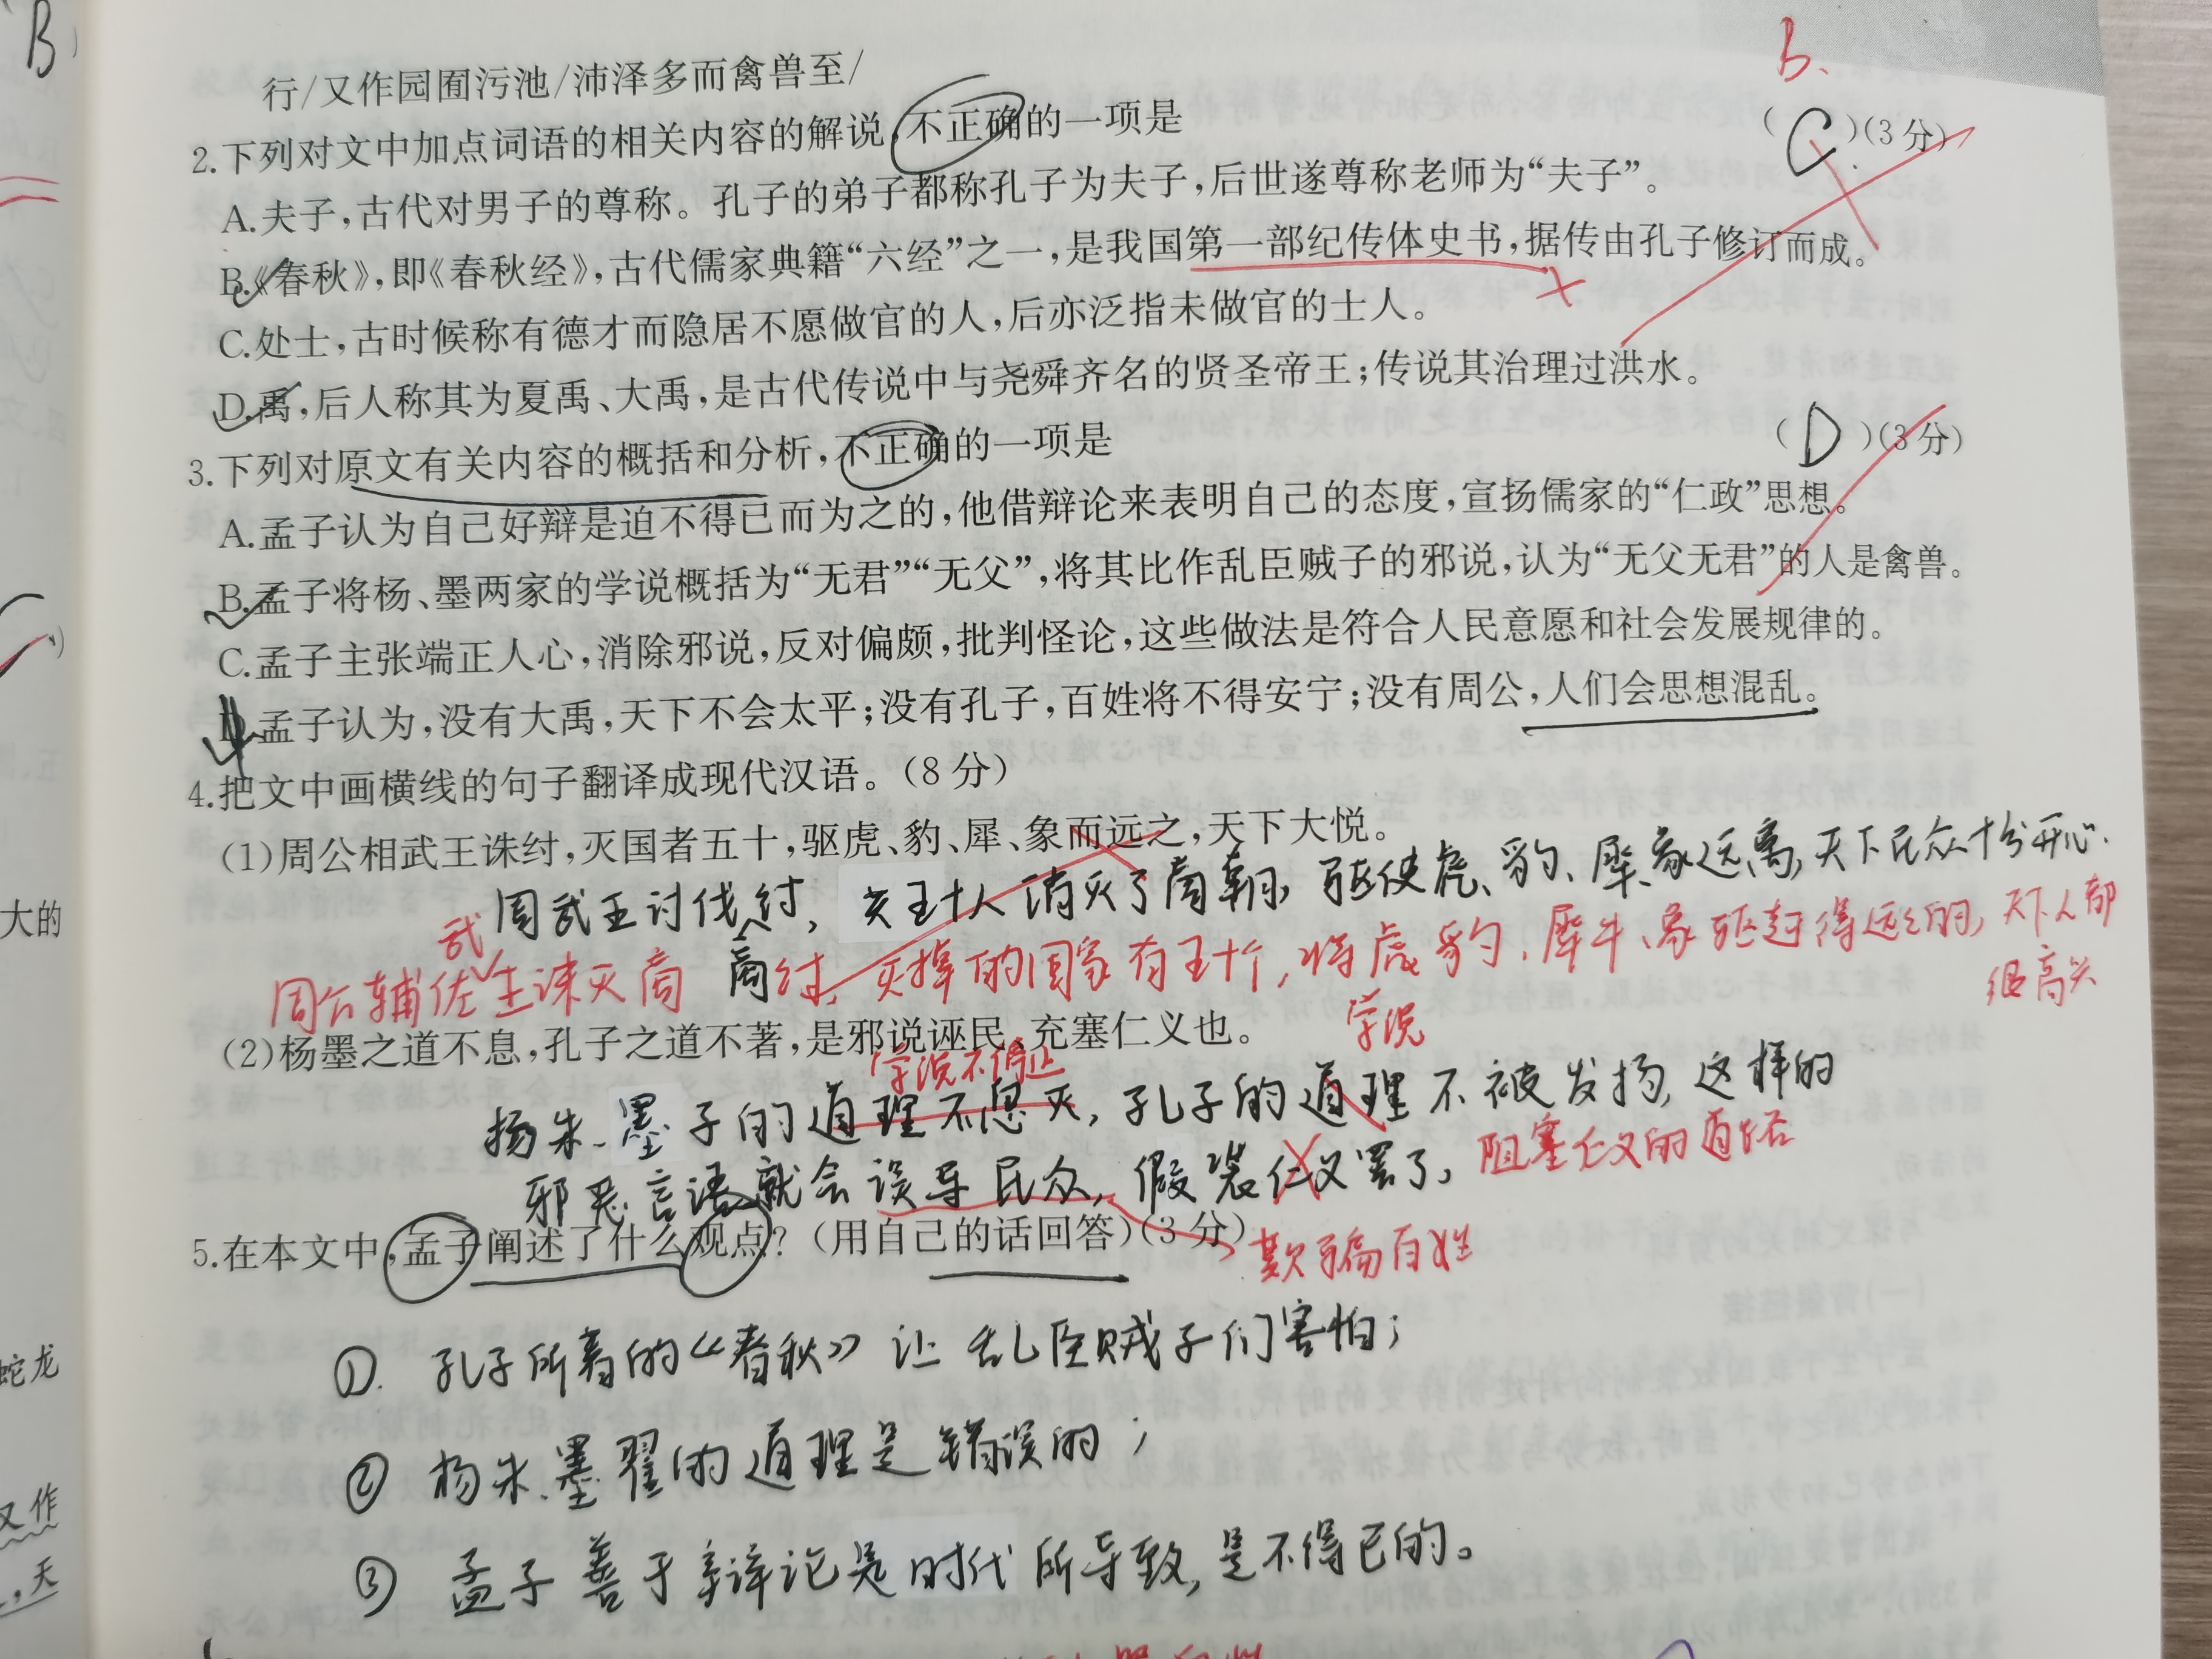 B
行/又作园囿污池/沛泽多而禽兽至/
B、
2.下列对文中加点词语的相关内容的解说,不正确的一项是
( C )(3分)
A.夫子,古代对男子的尊称。孔子的弟子都称孔子为夫子,后世遂尊称老师为“夫子”。
B.《春秋》,即《春秋经》,古代儒家典籍“六经”之一,是我国第一部纪传体史书,据传由孔子修订而成。
C.处士,古时候称有德才而隐居不愿做官的人,后亦泛指未做官的士人。
D.禹,后人称其为夏禹、大禹,是古代传说中与尧舜齐名的贤圣帝王;传说其治理过洪水。
3.下列对原文有关内容的概括和分析,不正确的一项是
( D )(3分)
A.孟子认为自己好辩是迫不得已而为之的,他借辩论来表明自己的态度,宣扬儒家的“仁政”思想。
B.孟子将杨、墨两家的学说概括为“无君”“无父”,将其比作乱臣贼子的邪说,认为“无父无君”的人是禽兽。
C.孟子主张端正人心,消除邪说,反对偏颇,批判怪论,这些做法是符合人民意愿和社会发展规律的。
D.孟子认为,没有大禹,天下不会太平;没有孔子,百姓将不得安宁;没有周公,人们会思想混乱。
4.把文中画横线的句子翻译成现代汉语。(8分)
(1)周公相武王诛纣,灭国者五十,驱虎、豹、犀、象而远之,天下大悦。
周武王讨伐纣,灭五十人消灭了商朝,驱使虎、豹、犀、象远离,天下民众十分开心.
商
武
周公辅佐王诛灭商纣,灭掉的国家有五十个,将虎豹、犀牛、象驱赶得远远的,天下人都
很高兴
大的
(2)杨墨之道不息,孔子之道不著,是邪说诬民,充塞仁义也。
学说
学说不停止
杨朱、墨子的道理不息灭,孔子的道理不被发扬,这样的
邪恶言语就会误导民众,假装仁义罢了,
阻塞仁义的道路
5.在本文中,孟子阐述了什么观点?(用自己的话回答)(3分)
欺骗百姓
①.孔子所着的《春秋》让乱臣贼子们害怕;
蛇龙
②杨朱、墨翟的道理是错误的;
又作
③孟子善于辩论是时代所导致,是不得已的。
,天